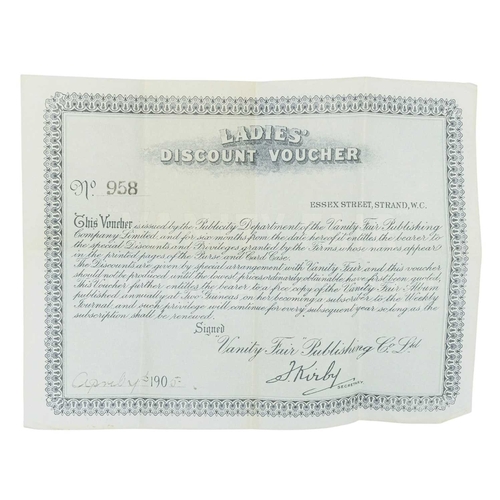 LADIES'
DISCOUNT VOUCHER
No. 958
ESSEX STREET, STRAND, W.C.
This Voucher is issued by the Publicity Department of the Vanity Fair Publishing
Company Limited, and for six months from the date hereof it entitles the bearer to
the special Discounts and Privileges granted by the Firms whose names appear
in the printed pages of the Purse and Card Case.
The Discounts are given by special arrangement with Vanity Fair and this voucher
should not be produced until the lowest prices ordinarily obtainable have first been quoted,
This Voucher further entitles the bearer to a free copy of the Vanity Fair Album
published annually at Two Guineas on her becoming a subscriber to the Weekly
Journal, and such privilege will continue for every subsequent year so long as the
subscription shall be renewed.
Signed
Vanity Fair Publishing Co. Ltd
190
J. Kirby
SECRETARY